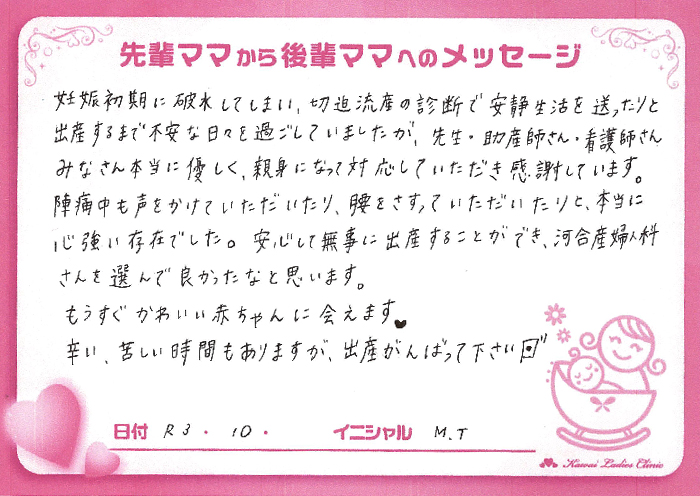 先輩ママから後輩ママへのメッセージ
妊娠初期に破水してしまい、切迫流産の診断で安静生活を送ったりと
出産するまで不安な日々を過ごしていましたが、先生・助産師さん・看護師さん
みなさん本当に優しく、親身になって対応していただき感謝しています。
陣痛中も声をかけていただいたり、腰をさすっていただいたりと、本当に
心強い存在でした。安心して無事に出産することができ、河合産婦人科
さんを選んで良かったなと思います。
もうすぐかわいい赤ちゃんに会えます♥
辛い、苦しい時間もありますが、出産がんばって下さい
日付 R3・10・ イニシャル M.T
Kawai Ladies Clinic